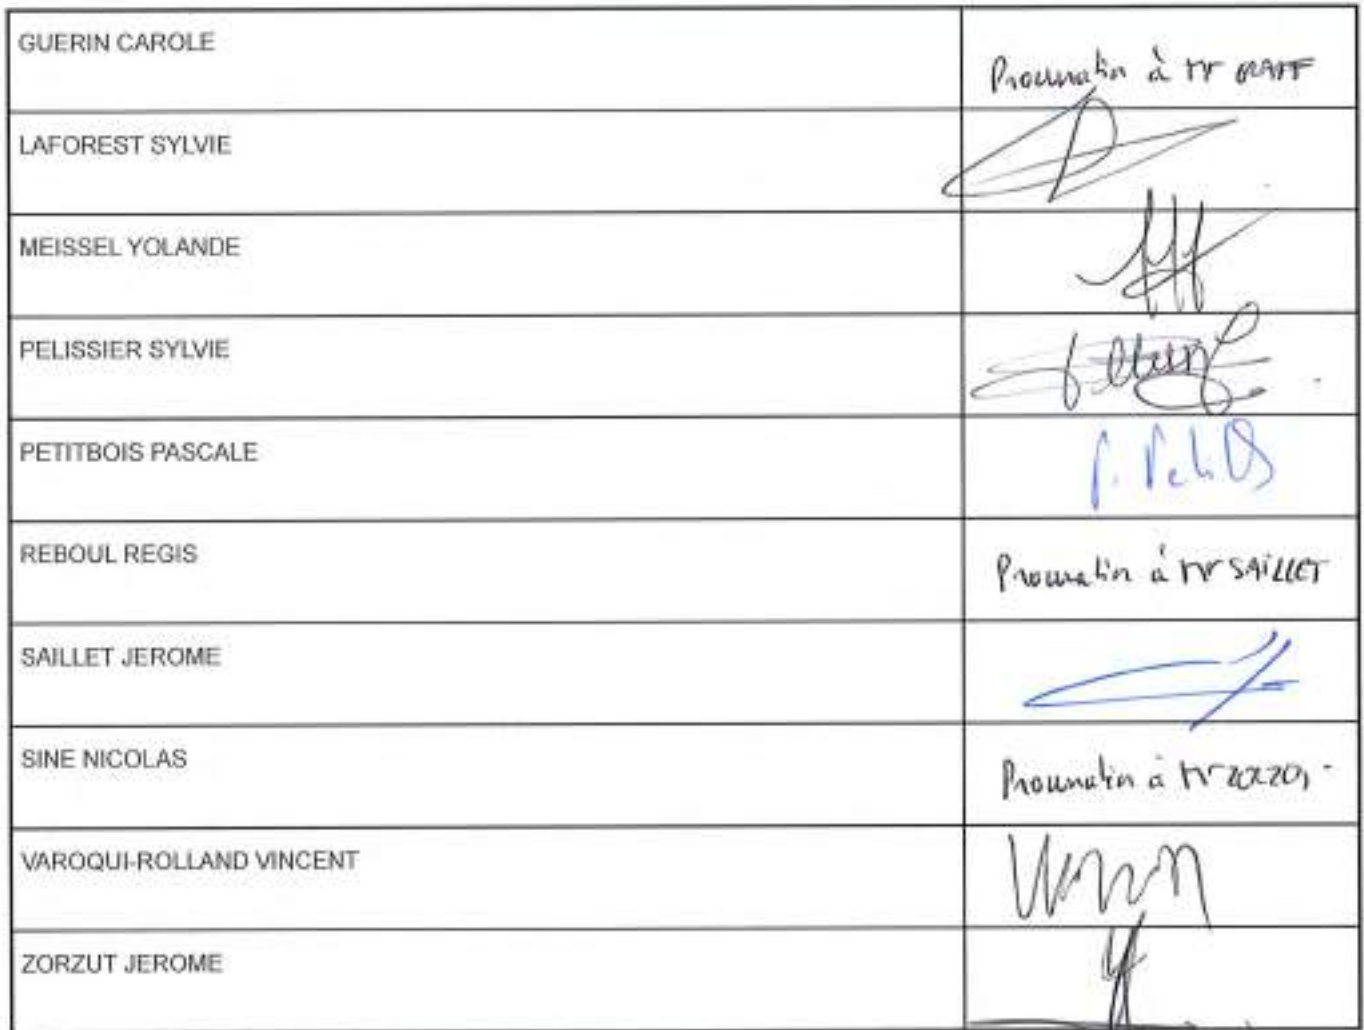 GUERIN CAROLE
Procuration à Mr
LAFOREST SYLVIE
MEISSEL YOLANDE
PELISSIER SYLVIE
PETITBOIS PASCALE
REBOUL REGIS
Procuration à Mr SAILLET
SAILLET JEROME
SINE NICOLAS
Procuration à Mr
VAROQUI-ROLLAND VINCENT
ZORZUT JEROME